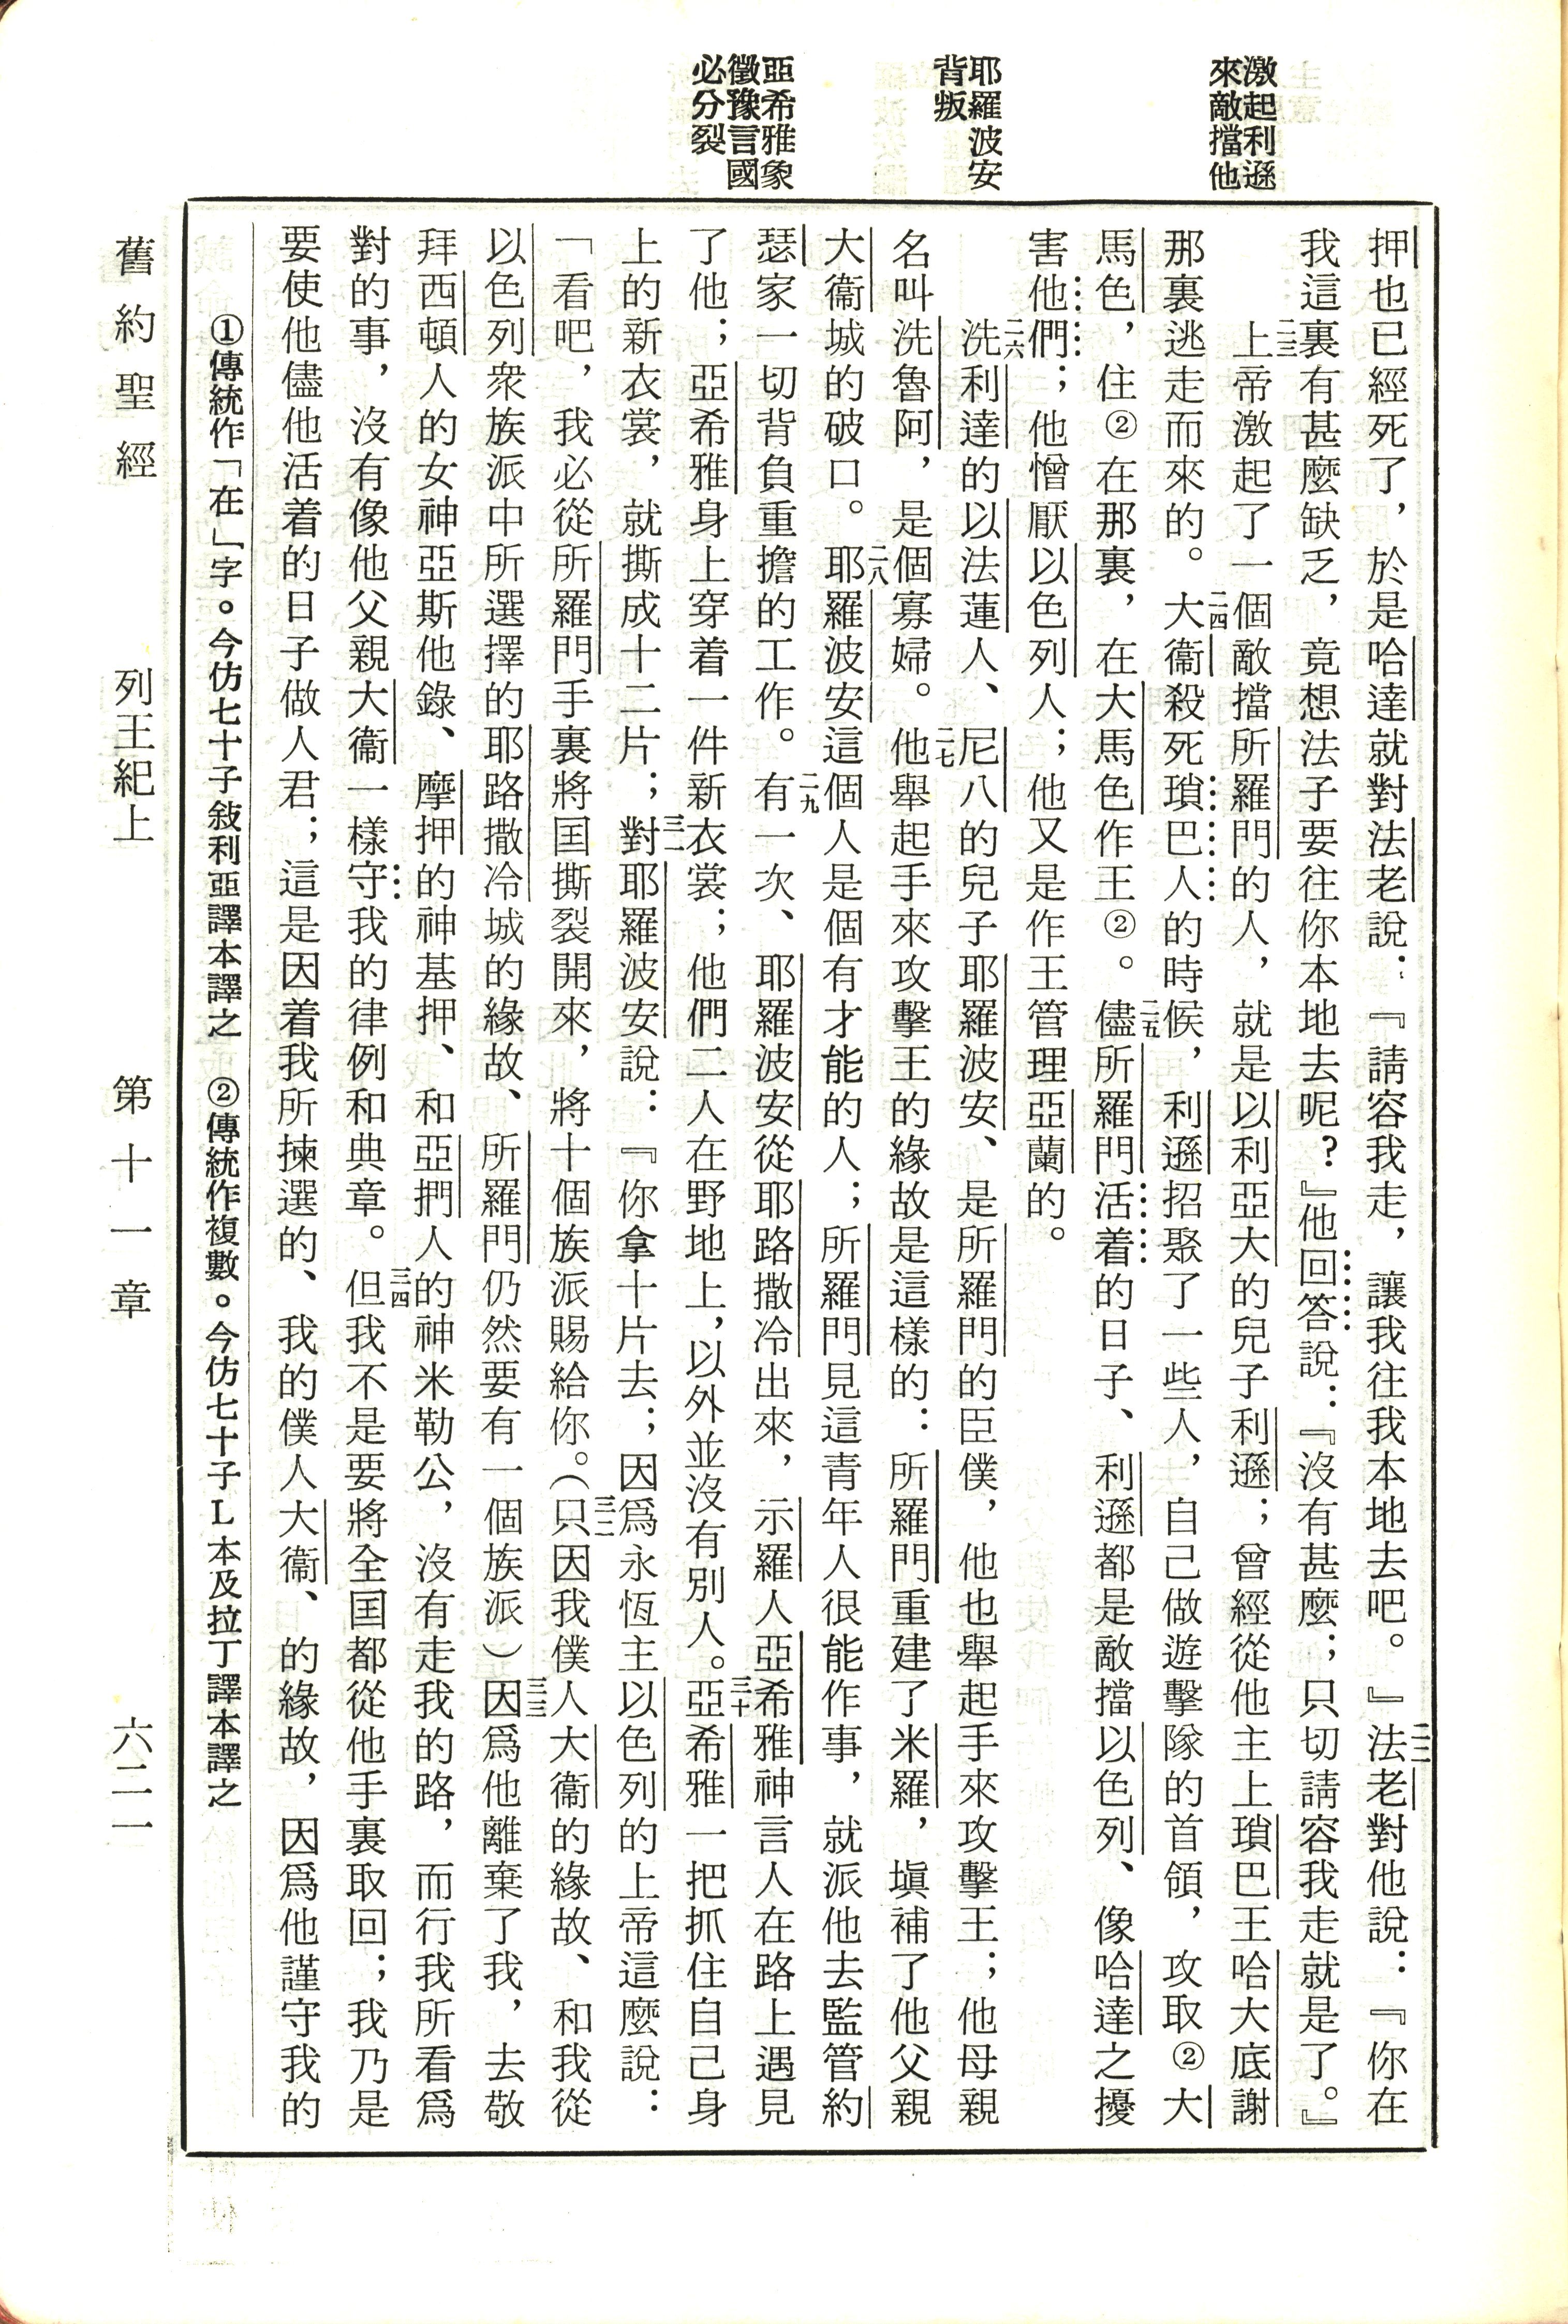 激起利遜
來敵擋他
耶羅波安
背叛
亞希雅象
徵豫言國
必分裂
押也已經死了，於是哈達就對法老說：『請容我走，讓我往我本地去吧。』二二法老對他說：『你在
我這裏有甚麼缺乏，竟想法子要往你本地去呢？』他回答說：『沒有甚麼；只切請容我走就是了。』
二三上帝激起了一個敵擋所羅門的人，就是以利亞大的兒子利遜；曾經從他主上瑣巴王哈大底謝
那裏逃走而來的。二四大衞殺死瑣巴人的時候，利遜招聚了一些人，自己做遊擊隊的首領，攻取②大
馬色，住②在那裏，在大馬色作王②。二五儘所羅門活着的日子、利遜都是敵擋以色列、像哈達之擾
害他們；他憎厭以色列人；他又是作王管理亞蘭的。
二六洗利達的以法蓮人、尼八的兒子耶羅波安、是所羅門的臣僕，他也舉起手來攻擊王；他母親
名叫洗魯阿，是個寡婦。二七他舉起手來攻擊王的緣故是這樣的：所羅門重建了米羅，塡補了他父親
大衞城的破口。二八耶羅波安這個人是個有才能的人；所羅門見這青年人很能作事，就派他去監管約
瑟家一切背負重擔的工作。二九有一次、耶羅波安從耶路撒冷出來，示羅人亞希雅神言人在路上遇見
了他；亞希雅身上穿着一件新衣裳；他們二人在野地上，以外並沒有別人。三十亞希雅一把抓住自己身
上的新衣裳，就撕成十二片；三一對耶羅波安說：『你拿十片去；因爲永恆主以色列的上帝這麼說：
「看吧，我必從所羅門手裏將囯撕裂開來，將十個族派賜給你。（三二只因我僕人大衞的緣故、和我從
以色列衆族派中所選擇的耶路撒冷城的緣故、所羅門仍然要有一個族派）三三因爲他離棄了我，去敬
拜西頓人的女神亞斯他錄、摩押的神基押、和亞捫人的神米勒公，沒有走我的路，而行我所看爲
對的事，沒有像他父親大衞一樣守我的律例和典章。三四但我不是要將全囯都從他手裏取回；我乃是
要使他儘他活着的日子做人君；這是因着我所揀選的、我的僕人大衞、的緣故，因爲他謹守我的
①傳統作「在」字。今仿七十子敍利亞譯本譯之　②傳統作複數。今仿七十子L本及拉丁譯本譯之
舊約聖經　列王紀上　第十一章　六二一